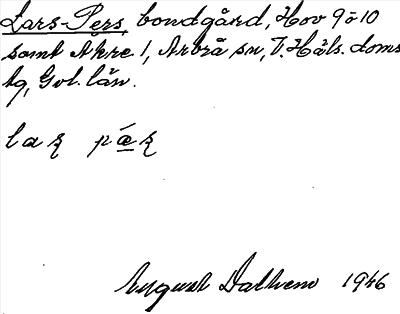 Lars-Pers, bondgård, Hov 9 o 10
samt Åkre 1, Arbrå sn, V. Häls. doms
tg, Gvl. län.
laʐ pæʐ
August Dalhem 1946